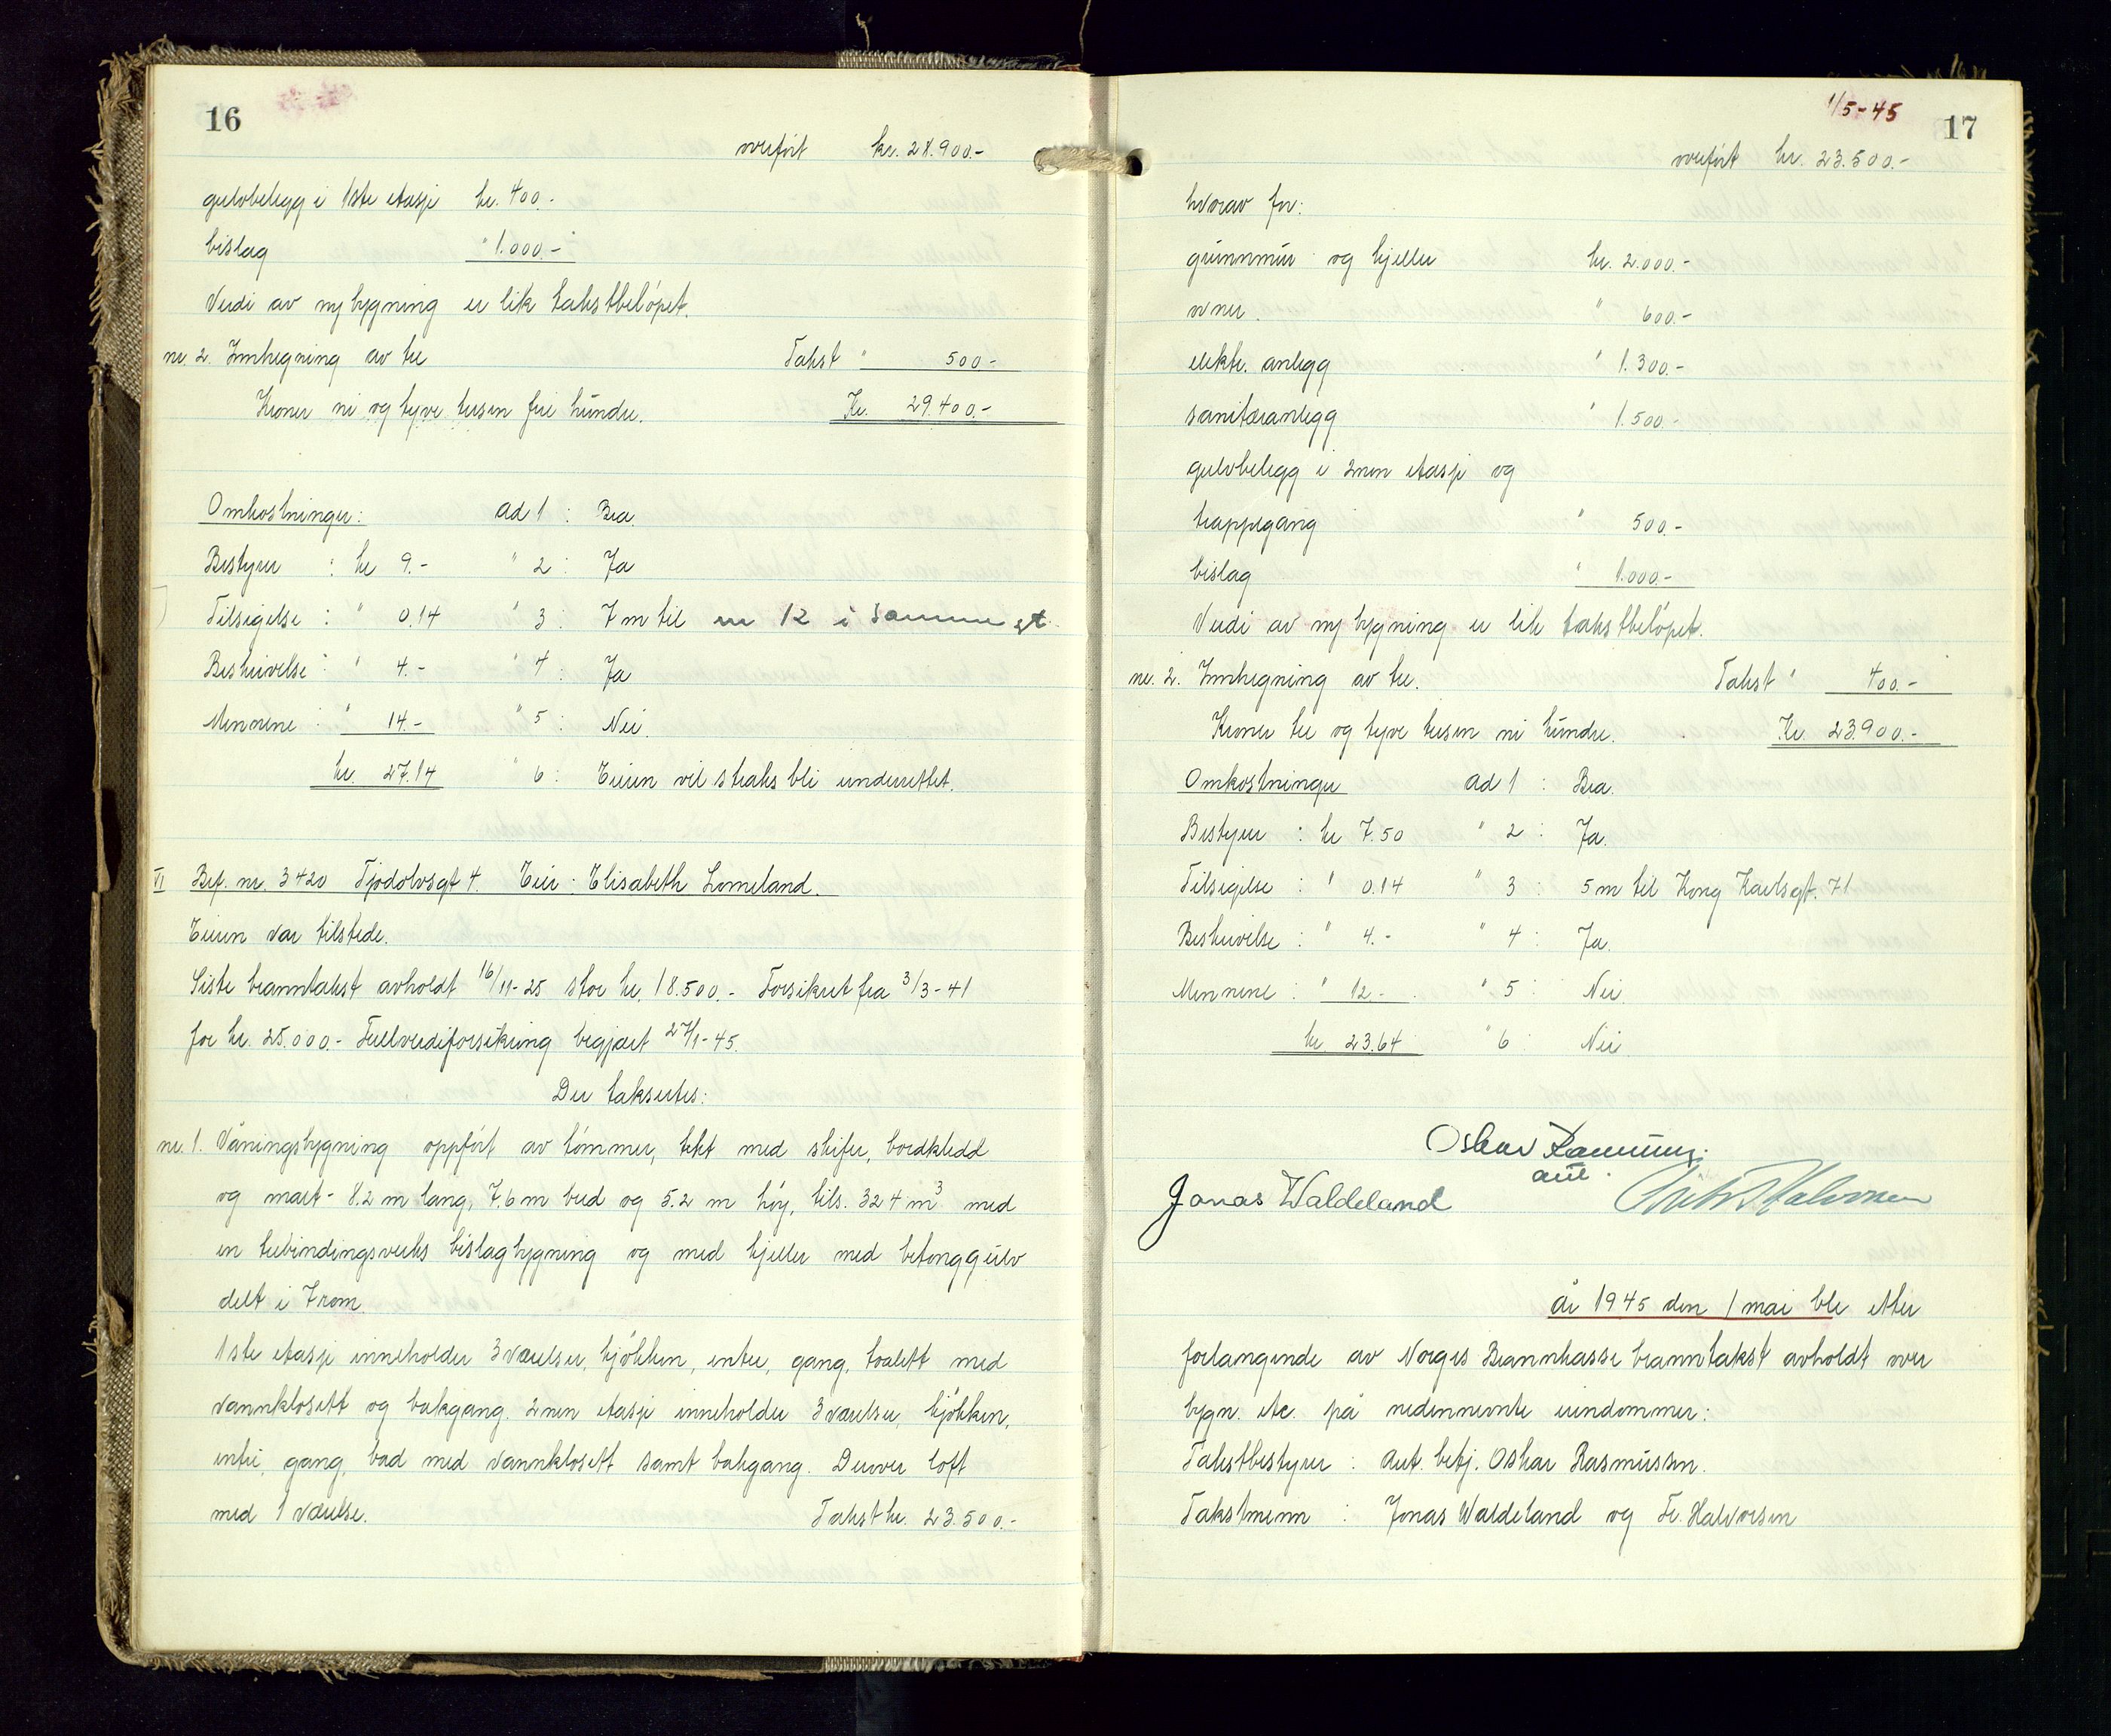 16
overført kr. 28.900.-
gulvbelegg i 1ste etasje kr. 400.-
bislag " 1.000.- "
Verdi av ny bygning er lik takstbeløpet.
nr. 2. Innhegning av tre Takst " 500.-
Kroner ni og tyve tusen fire hundre. Kr. 29.400.-
Omkostninger: ad 1 : Bra.
Bestyrer : kr 9.- " 2 : Ja
Tilsigelse : " 0.14 " 3 : 7 m til nr 12 i samme gt.
Beskrivelse : " 4.- " 4 : Ja
Mennene : " 14.- " 5 : Nei.
kr. 27.14 " 6 : Eieren vil straks bli underrettet.
VI Bef. nr. 3420 Tjodolvsgt 4. Eier : Elisabeth Lomeland.
Eieren var tilstede.
Siste branntakst avholdt 16/11-25 stor kr. 18.500.- Forsikret fra 3/3-41
for kr. 25.000.- Fullverdiforsikring begjært 27/1-45.
Der taksertes:
nr. 1. Våningsbygning oppført av tømmer, tekt med skifer, bordkledd
og malt - 8.2 m lang, 7.6 m bred og 5.2 m høy, tils. 324 m³ med
en trebindingsverks bislagbygning og med kjeller med betonggulv
delt i 7 rom.
1ste etasje inneholder 3 værelser, kjøkken, entre, gang, toalett med
vannklosett og bakgang. 2nen etasje inneholder 3 værelser, kjøkken,
entré, gang, bad med vannklosett samt bakgang. Derover loft
med 1 værelse. Takst kr. 23.500.-
1/5-45
17
overført kr. 23.500.-
hvorav for:
grunnmur og kjeller kr. 2.000.-
ovner. " 600.-
elektr. anlegg " 1.300.-
sanitæranlegg " 1.500.-
gulvbelegg i 2nen etasje og
trappegang " 500.-
bislag " 1.000.-
Verdi av ny bygning er lik takstbeløpet.
nr. 2. Innhegning av tre. Takst " 400.-
Kroner tre og tyve tusen ni hundre. Kr. 23.900.-
Omkostninger ad 1 : Bra.
Bestyrer : kr 7.50 " 2 : Ja.
Tilsigelse : " 0.14 " 3 : 5 m til Kong Karlsgt. 71
Beskrivelse : " 4.- " 4 : Ja.
Mennene : " 12.- " 5 : Nei
kr. 23.64 " 6 : Nei
Oskar Rasmussen.
aut.
Jonas Waldeland Halvorsen
År 1945 den 1 mai ble etter
forlangende av Norges Brannkasse branntakst avholdt over
bygn. etc. på nedennevnte eiendommer:
Takstbestyrer : Aut. betj. Oskar Rasmussen.
Takstmenn : Jonas Waldeland og Fr. Halvorsen